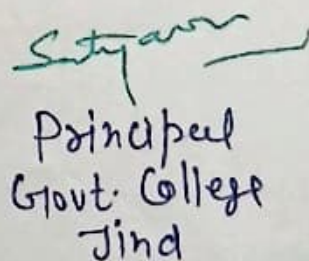 Satyavan
Principal
Govt. College
Jind